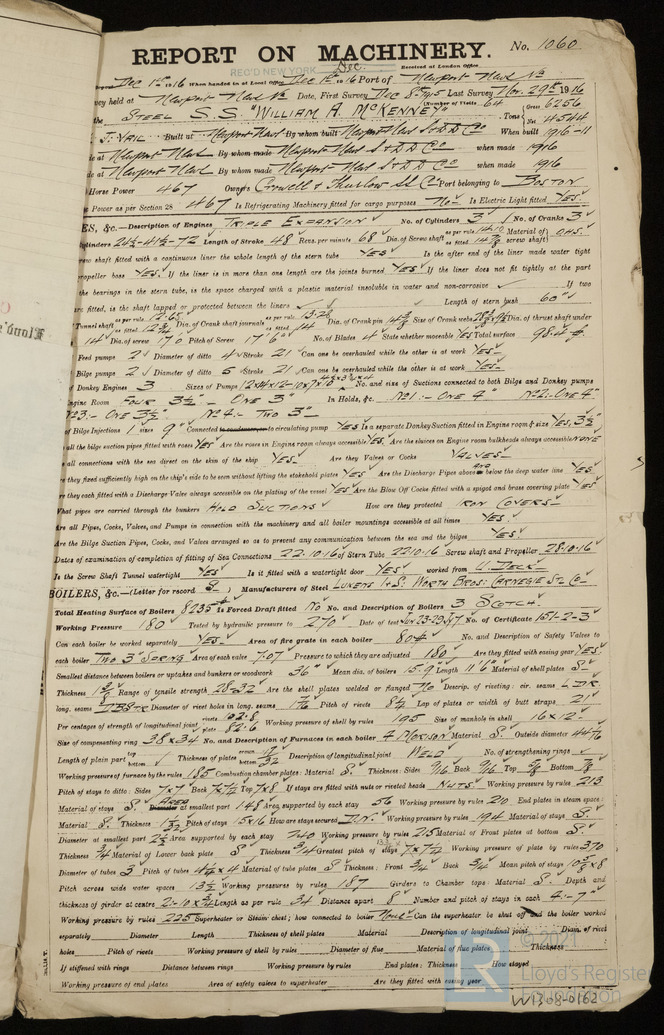 REPORT ON MACHINERY. No. 1060
REC'D NEW YORK Dec Received at London Office
Dec 1st 1916 When handed in at Local Office Dec 1st 1916 Port of Newport News Va
vey held at Newport News Va Date, First Survey Dec 8th 1915 Last Survey Nov. 29th 1916
(Number of Visits 64
the STEEL S.S. "WILLIAM A. McKENNEY" Tons Gross 6256 Net 4544
J. VAIL Built at Newport News By whom built Newport News S & D D Co When built 1916-11
de at Newport News By whom made Newport News S & D D Co when made 1916
de at Newport News By whom made Newport News S & D D Co when made 1916
Horse Power 467 Owners Crowell & Thurlow SS Co Port belonging to BOSTON
Power as per Section 28 467 Is Refrigerating Machinery fitted for cargo purposes No Is Electric Light fitted YES.
ES, &c.—Description of Engines TRIPLE EXPANSION No. of Cylinders 3 No. of Cranks 3
Cylinders 24½-41½-72 Length of Stroke 48 Revs. per minute 68 Dia. of Screw shaft as per rule 14.10 as fitted 14 7/8 Material of screw shaft O.H.S.
rew shaft fitted with a continuous liner the whole length of the stern tube YES Is the after end of the liner made water tight
ropeller boss YES. If the liner is in more than one length are the joints burned YES If the liner does not fit tightly at the part
the bearings in the stern tube, is the space charged with a plastic material insoluble in water and non-corrosive If two
are fitted, is the shaft lapped or protected between the liners Length of stern bush 60"
Tunnel shaft as per rule 12.65 as fitted 12¾ Dia. of Crank shaft journals as per rule 13.28 as fitted 14 Dia. of Crank pin 14¼ Size of Crank webs Dia. of thrust shaft under
14 Dia. of screw 17.0 Pitch of Screw 17'6" No. of Blades 4 State whether moveable YES Total surface 98.4
Feed pumps 2 Diameter of ditto 4 Stroke 21 Can one be overhauled while the other is at work YES-
Bilge pumps 2 Diameter of ditto 5 Stroke 21 Can one be overhauled while the other is at work YES-
of Donkey Engines 3 Sizes of Pumps No. and sizes of Suctions connected to both Bilge and Donkey pumps
Engine Room FOUR 3½" - ONE 3" In Holds, &c. No1:- ONE 4" No2:- ONE 4"
No3:- ONE 3½" No4:- TWO 3"
of Bilge Injections 1 sizes 9" Connected to condenser, or to circulating pump YES Is a separate Donkey Suction fitted in Engine room & size YES, 3½"
all the bilge suction pipes fitted with roses YES Are the roses in Engine room always accessible YES. Are the sluices on Engine room bulkheads always accessible NONE
all connections with the sea direct on the skin of the ship YES Are they Valves or Cocks VALVES-
are they fixed sufficiently high on the ship's side to be seen without lifting the stokehold plates YES Are the Discharge Pipes above or below the deep water line YES
are they each fitted with a Discharge Valve always accessible on the plating of the vessel YES Are the Blow Off Cocks fitted with a spigot and brass covering plate YES
What pipes are carried through the bunkers HOLD SUCTIONS How are they protected IRON COVERS-
Are all Pipes, Cocks, Valves, and Pumps in connection with the machinery and all boiler mountings accessible at all times YES.
Are the Bilge Suction Pipes, Cocks, and Valves arranged so as to prevent any communication between the sea and the bilges YES.
Dates of examination of completion of fitting of Sea Connections 22.10.16 of Stern Tube 22.10.16 Screw shaft and Propeller 28.10.16
Is the Screw Shaft Tunnel watertight YES Is it fitted with a watertight door YES worked from U. DECK-
BOILERS, &c.— (Letter for record S-) Manufacturers of Steel LUKENS I & S: WORTH BROS: CARNEGIE ST. CO-
Total Heating Surface of Boilers 8235 Is Forced Draft fitted NO No. and Description of Boilers 3 SCOTCH.
Working Pressure 180 Tested by hydraulic pressure to 270 Date of test No. of Certificate 151-2-3
Can each boiler be worked separately YES- Area of fire grate in each boiler 80 No. and Description of Safety Valves to
each boiler TWO 3" SPRING Area of each valve 7.07 Pressure to which they are adjusted 180 Are they fitted with easing gear YES
Smallest distance between boilers or uptakes and bunkers or woodwork 36" Mean dia. of boilers 15.9" Length 11'6" Material of shell plates S-
Thickness Range of tensile strength 28-32 Are the shell plates welded or flanged NO Descrip. of riveting: cir. seams L.D.R.
long. seams Diameter of rivet holes in long. seams Pitch of rivets 8½ Lap of plates or width of butt straps 21
Per centages of strength of longitudinal joint rivets plate 82.6 Working pressure of shell by rules 195 Size of manhole in shell 16 x 12"
Size of compensating ring 38 x 34 No. and Description of Furnaces in each boiler 4 MORISON Material S. Outside diameter
Length of plain part top bottom Thickness of plates crown bottom Description of longitudinal joint WELD No. of strengthening rings
Working pressure of furnace by the rules 185 Combustion chamber plates: Material S. Thickness: Sides 9/16 Back 9/16 Top Bottom
Pitch of stays to ditto: Sides 7x7 Back 7x7½ Top 7x8 If stays are fitted with nuts or riveted heads NUTS Working pressure by rules 213
Material of stays S. AREA at smallest part 1.48 Area supported by each stay 56 Working pressure by rules 210 End plates in steam space:
Material S. Thickness Pitch of stays 15x16 How are stays secured D.N. Working pressure by rules 194 Material of stays S.
Diameter at smallest part Area supported by each stay 240 Working pressure by rules 215 Material of Front plates at bottom S.
Thickness ¾ Material of Lower back plate S Thickness ¾ Greatest pitch of stays Working pressure of plate by rules 370
Diameter of tubes 3 Pitch of tubes 4¼ x 4 Material of tube plates S Thickness: Front ¾ Back ¾ Mean pitch of stays
Pitch across wide water spaces 13½ Working pressures by rules 187 Girders to Chamber tops: Material S. Depth and
thickness of girder at centre Length as per rule 34 Distance apart 8 Number and pitch of stays in each 4-7"
Working pressure by rules 225 Superheater or Steam chest; how connected to boiler NONE Can the superheater be shut off and the boiler worked
separately Diameter Length Thickness of shell plates Material Description of longitudinal joint Diam. of rivet
holes Pitch of rivets Working pressure of shell by rules Diameter of flue Material of flue plates Thickness
If stiffened with rings Distance between rings Working pressure by rules End plates: Thickness How stayed
Working pressure of end plates Area of safety valves to superheater Are they fitted with easing gear
© 2021
Lloyd's Register
Foundation
W1308-0162